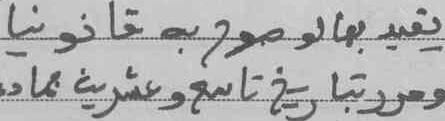 يقيد بها لو صرح به قانونيا
وحرر بتاريخ تاسع وعشرين جماد